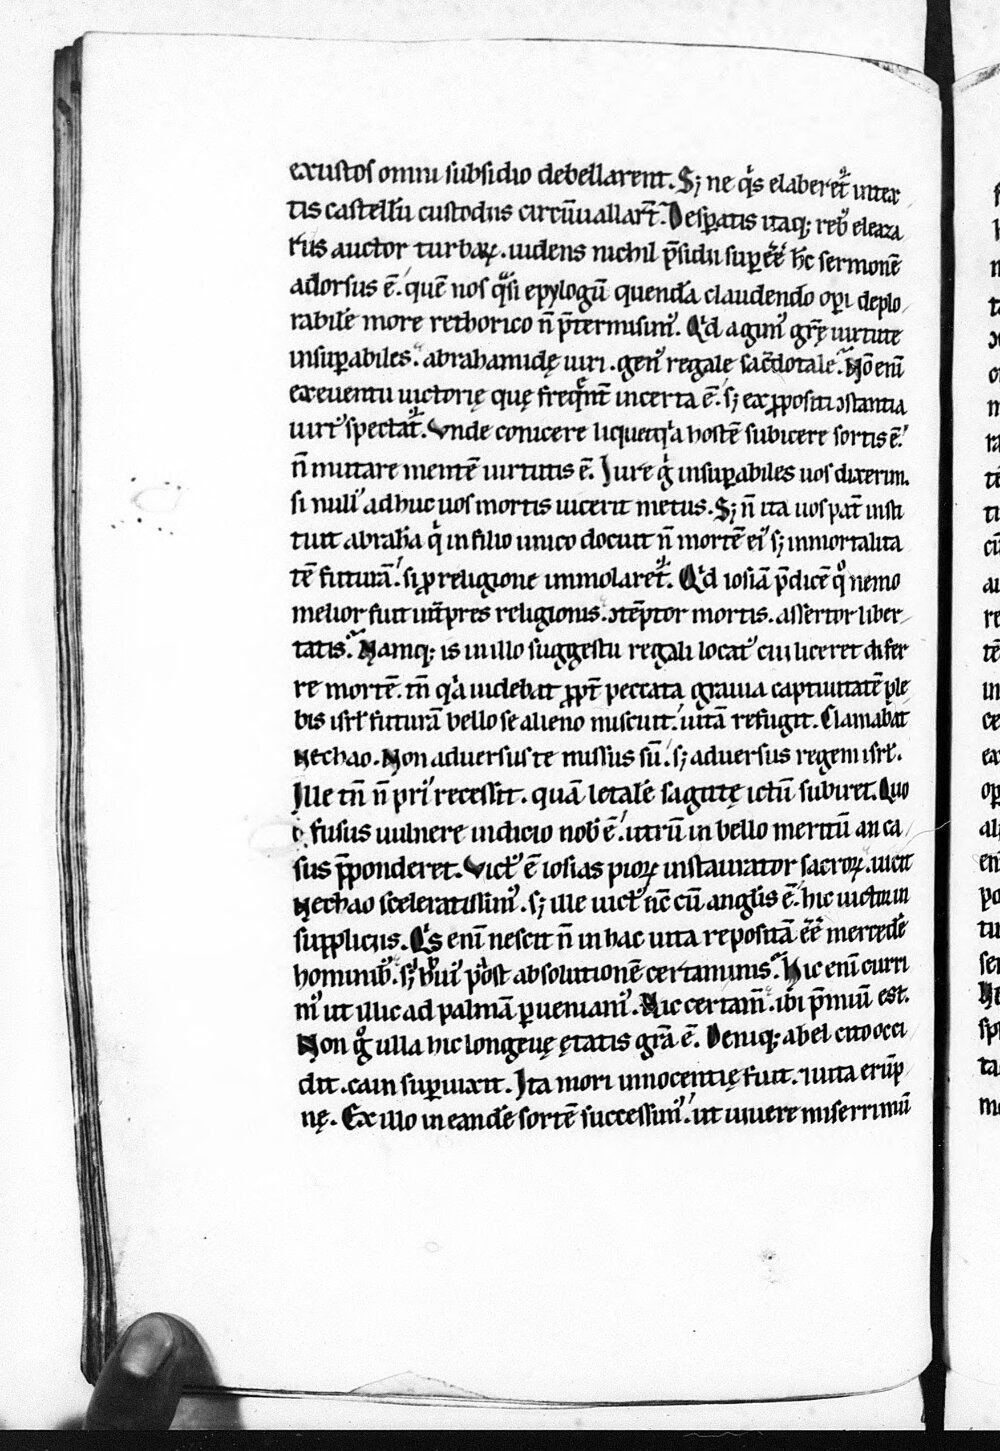 exustos omni subsidio debellarent. S; ne q̇s elaberet᷑ inter
tis castellū custodiis circūuallart᷑. Desꝑatis itaq; reb᷒ eleaza
rus auctor turbaꝝ. uidens nichil p̄sidii suꝑ eḗ hc̄ sermonē
adorsus ē. quē nos q͛si epylogū quenda claudendo oꝑi deplo
rabile more rethorico n̄ p̄termisim᷒. Qͥd agim᷒ grę̄ uirtute
insuꝑabiles. abrahamidę uiri. gen᷒ regale sac̄dotale. Nō eni
ex euentu uictorię quę freq̄nt᷑ incerta ē. s; ex ꝓpositi ↄstantia
uirt᷒ spectat᷑. Vnde conicere liquet qͥa hostē subicere sortis ē.
n̄ mutare mentē uirtutis ē. Iure g̊ insuꝑabiles uos dixerim.
si null᷒ adhuc uos mortis uicerit metus. S; n̄ ita uos pat᷑ insti
tuit abraha qͥ in filio unico docuit n̄ mortē ei᷒ s; inmortalita
tē futurā. si ꝓ religione immolaret᷑. Qͥd iosiā p̄dicē qͦ nemo
melior fuit int᷑pres religionis. ↄtēptor mortis. assertor liber
tatis. Namq; is in illo suggestu regali locat᷒ cui liceret differ
re mortē. tn̄ qͥa uidebat ꝓpt᷑ peccata grauia captiuitatē ple
bis isrl̄ futurā bello se alieno miscuit. uitā refugit. Clamabat
Nechao. Non aduersus te missus sū. s; aduersus regem isrl̄.
Ille tn̄ n̄ pri᷒ recessit. quā letale sagittę ictū subiret. Quo
fusus uulnere indicio nob᷒ ē. utrū in bello meritū an ca
sus p̄ponderet. Vict᷒ ē iosias pioꝝ instaurator sacroꝝ. uicit
Nechao sceleratissim᷒. s; ille uict᷒ nc̄ cū anglis ē. hic uictor in
suppliciis. Qͥs eni nescit n̄ in hac uita repositā eḗ mercede
hominib᷒. s; hui᷒ post absolutionē certaminis. Hic eni curri
m᷒ ut illic ad palmā ꝑueniam᷒. Hic certam̄. ibi p̄miū est.
Non g̊ ulla hic longeuę ętatis gr̄a ē. Deniq; abel cito occi
dit. cain suꝑuixit. Ita mori innocentię fuit. uita erūp
nę. Ex illo in eande sortē successim᷒. ut uiuere miserrimū